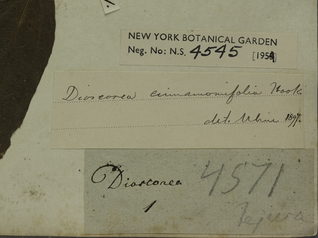 NEW YORK BOTANICAL GARDEN
Neg. No: N.S. 4545 [195
Dioscorea cinnamomifolia Hook
det. Uline 1897.
Dioscorea 4571
1